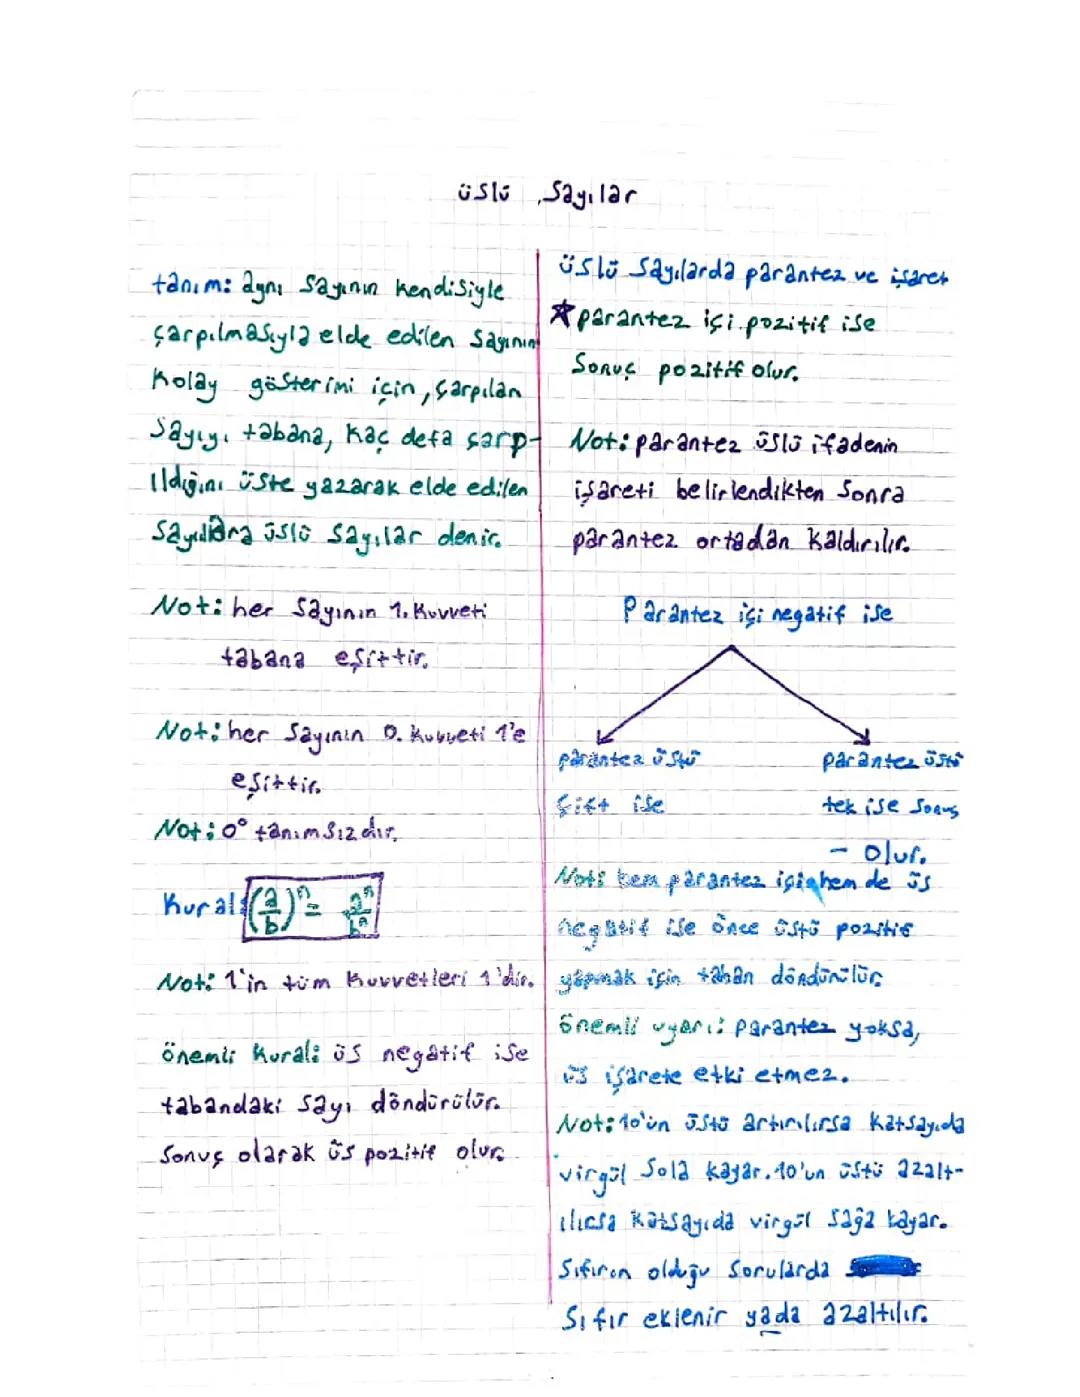 üslü sayılar
tanım: aynı sayının kendisiyle
çarpılmasıyla elde edilen sayının
kolay gösterimi için, çarpılan
sayıyı tabana, kaç defa çarp-
ıldığını üste yazarak elde edilen
sayılara üslü sayılar denir.
Not: her sayının 1. kuvveti
tabana eşittir.
Not: her sayının 0. kuvveti 1'e
eşittir.
Not: 0⁰ tanımsızdır.
Kural: (a/b)ⁿ = aⁿ/bⁿ
Not: 1'in tüm kuvvetleri 1'dir.
önemli kural: üs negatif ise
tabandaki sayı döndürülür.
Sonuç olarak üs pozitif olur.
üslü sayılarda parantez ve işaret
★ parantez içi pozitif ise
Sonuç pozitif olur.
Not: parantez üslü ifadenin
işareti belirlendikten sonra
parantez ortadan kaldırılır.
Parantez içi negatif ise
parantez üstü
çift ise
parantez üstü
tek ise sonuç
- olur.
Not: hem parantez içi hem de üs
negatif ise önce üstü pozitif
yapmak için taban döndürülür.
önemli uyarı: parantez yoksa,
üs işarete etki etmez.
Not: 10'un üstü artırılırsa katsayıda
virgül sola kayar. 10'un üstü azalt-
ılırsa katsayıda virgül sağa kayar.
Sıfırın olduğu sorularda
Sıfır eklenir yada azaltılır.